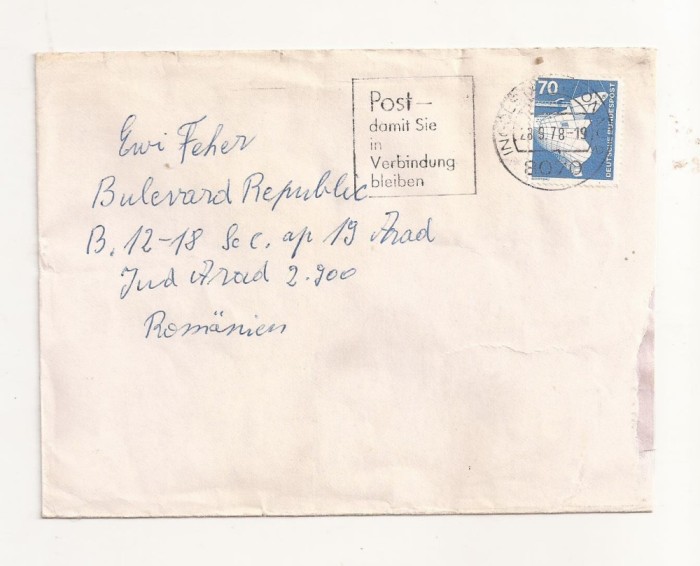 Post –
damit Sie
in
Verbindung
bleiben
70
DEUTSCHE BUNDESPOST
28.9.78-19
8070
Ewi Feher
Bulevard Republic
B. 12-18 Sc c. ap 19 Arad
Jud Arad 2.900
Romänien